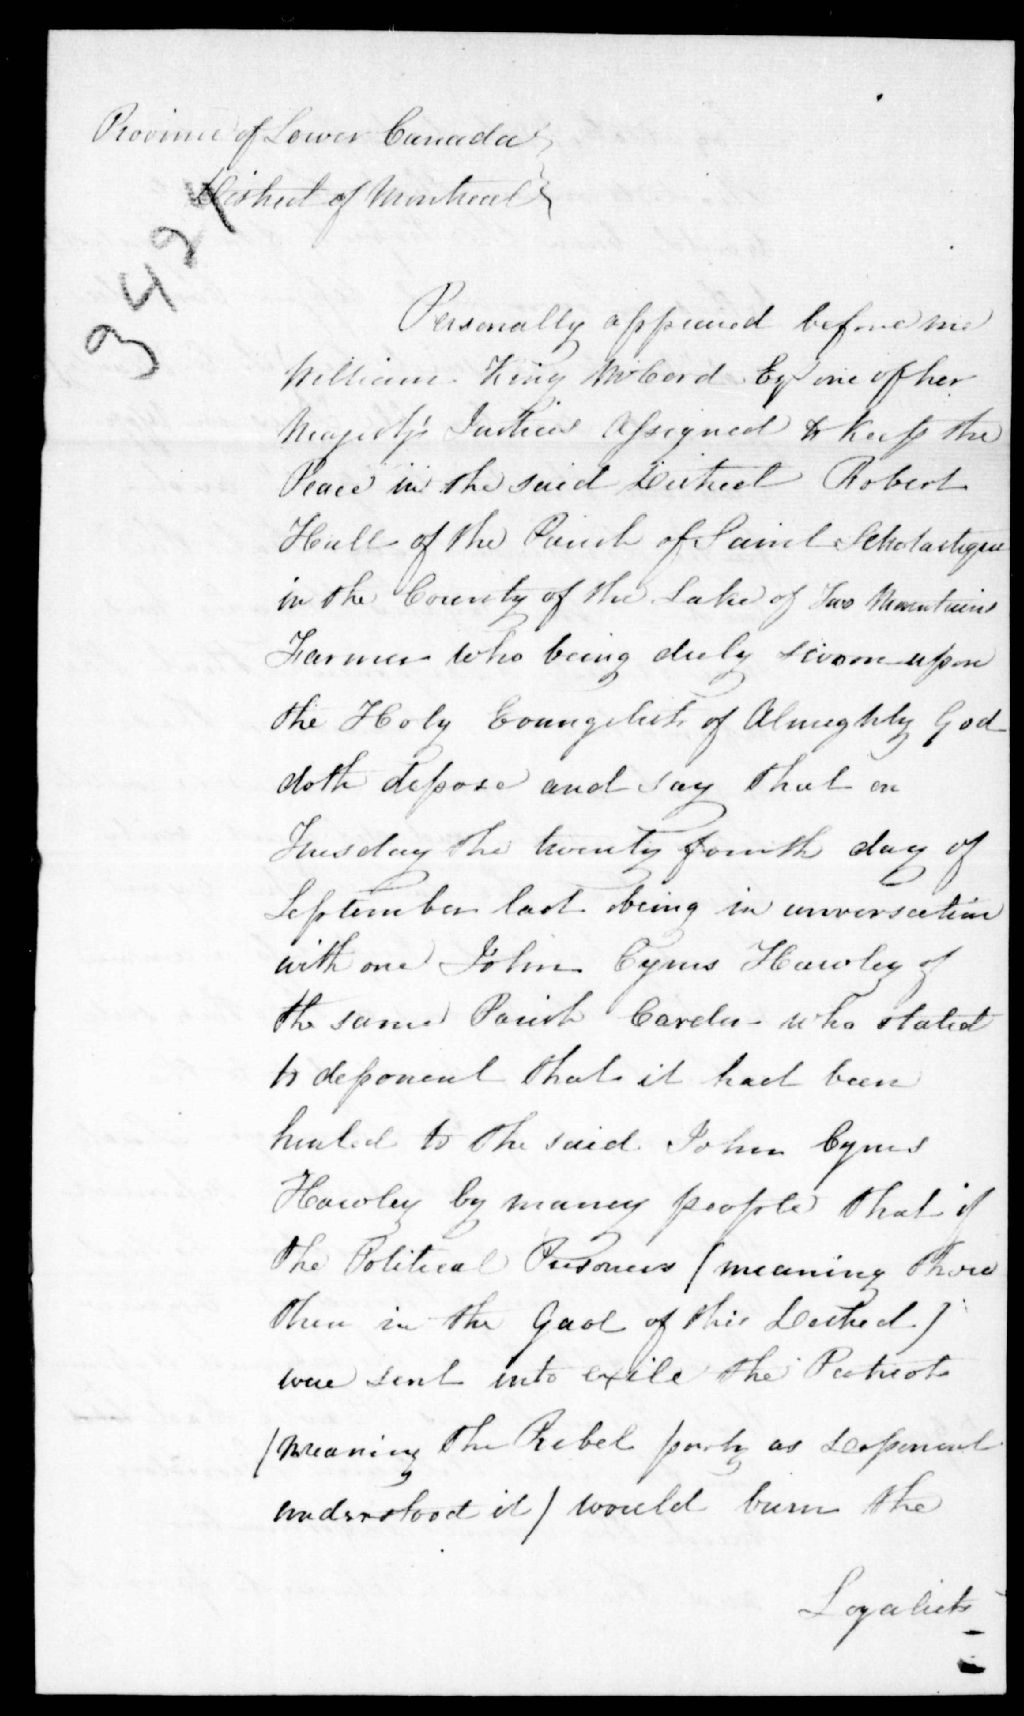 Province of Lower Canada }
District of Montreal }
3424
Personally appeared before me
William King McCord Esq one of her
Majesty's Justices assigned to keep the
Peace in the said District Robert
Hall of the Parish of Saint Scholastique
in the County of the Lake of Two Mountains
Farmer who being duly sworn upon
the Holy Evangelists of Almighty God
doth depose and say that on
Tuesday the twenty fourth day of
September last being in conversation
with one John Cyrus Hawley of
the same Parish Carder who stated
to deponent that it had been
hinted to the said John Cyrus
Hawley by maney people that if
the Political Prisoners (meaning those
then in the Gaol of this District)
were sent into exile the Patriots
(meaning the Rebel party as Deponent
understood it) would burn the
Loyalists